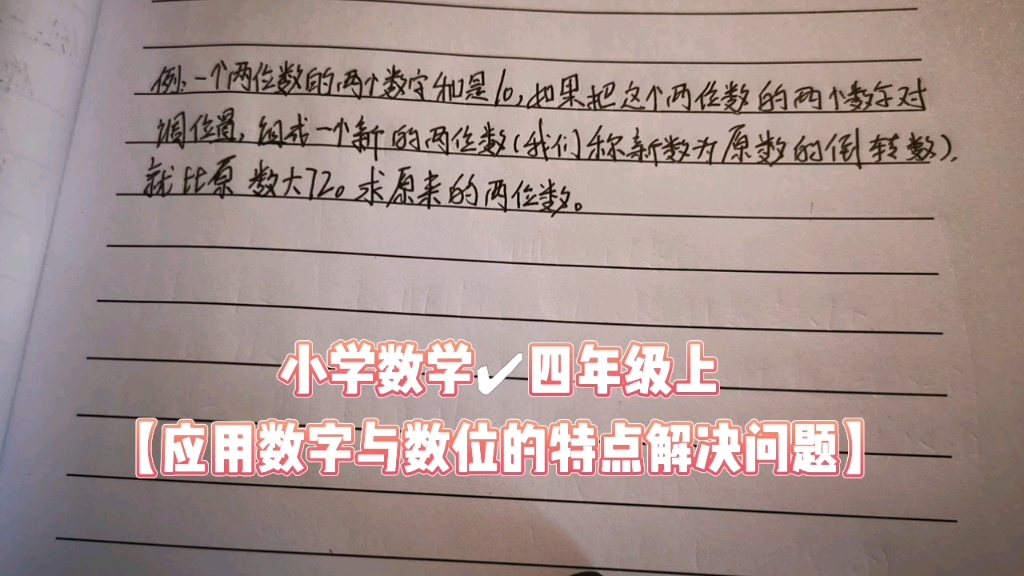 例:一个两位数的两个数字和是10,如果把这个两位数的两个数字对
调位置,组成一个新的两位数(我们称新数为原数的倒转数),
就比原数大72。求原来的两位数。
小学数学✔四年级上
【应用数字与数位的特点解决问题】